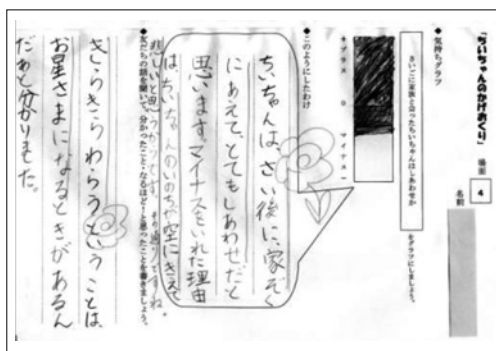 「ちいちゃんのかげおくり」 場面 4
名前
◆気持ちグラフ
さいごに家族と会ったちいちゃんはしあわせか をグラフにしましょう。
+プラス 0 マイナス-
◆このようにしたわけ
ちいちゃんは、さい後に、家ぞく
にあえて、とてもしあわせだと
思います。マイナスをいれた理由
は、ちいちゃんのいのちが空にきえて
悲しいと思うからです。その通りですね。
◆友だちの話を聞いて、分かったこと・なるほど!と思ったことを書きましょう。
きらきらわらうということは、
お星さまになるときがあるん
だあと分かりました。